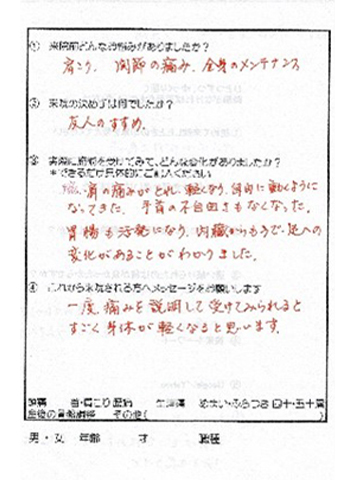 ① 来院前どんなお悩みがありましたか?
肩こり、関節の痛み、全身のメンテナンス
② 来院の決め手は何でしたか?
友人のすすめ。
③ 実際に施術を受けてみて、どんな変化がありましたか?
*できるだけ具体的にご記入ください
肩の痛みがとれ、軽くなり、自由に動くように
なってきた。手首の不自由さもなくなった。
胃腸も活発になり、内臓からも手・足への
変化があることがわかりました。
④ これから来院される方へメッセージをお願いします
一度、痛みを説明して受けてみられると
すごく身体が軽くなると思います。
頭痛 首・肩こり 腰痛 生理痛 めまい・ふらつき 四十・五十肩
産後の骨盤調整 その他( )
男・女 年齢 才 職種